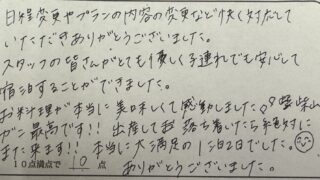 日程変更やプランの内容の変更など快く対応して
いただきありがとうございました。
スタッフの皆さんがとても優しく子連れでも安心して
宿泊することができました。
お料理が本当に美味しくて感動しました。
ガニ最高です!!出産してお落ち着いたら絶対に
また来ます!!本当に大満足の1泊2日でした。
10点満点で 10 点 ありがとうございました。